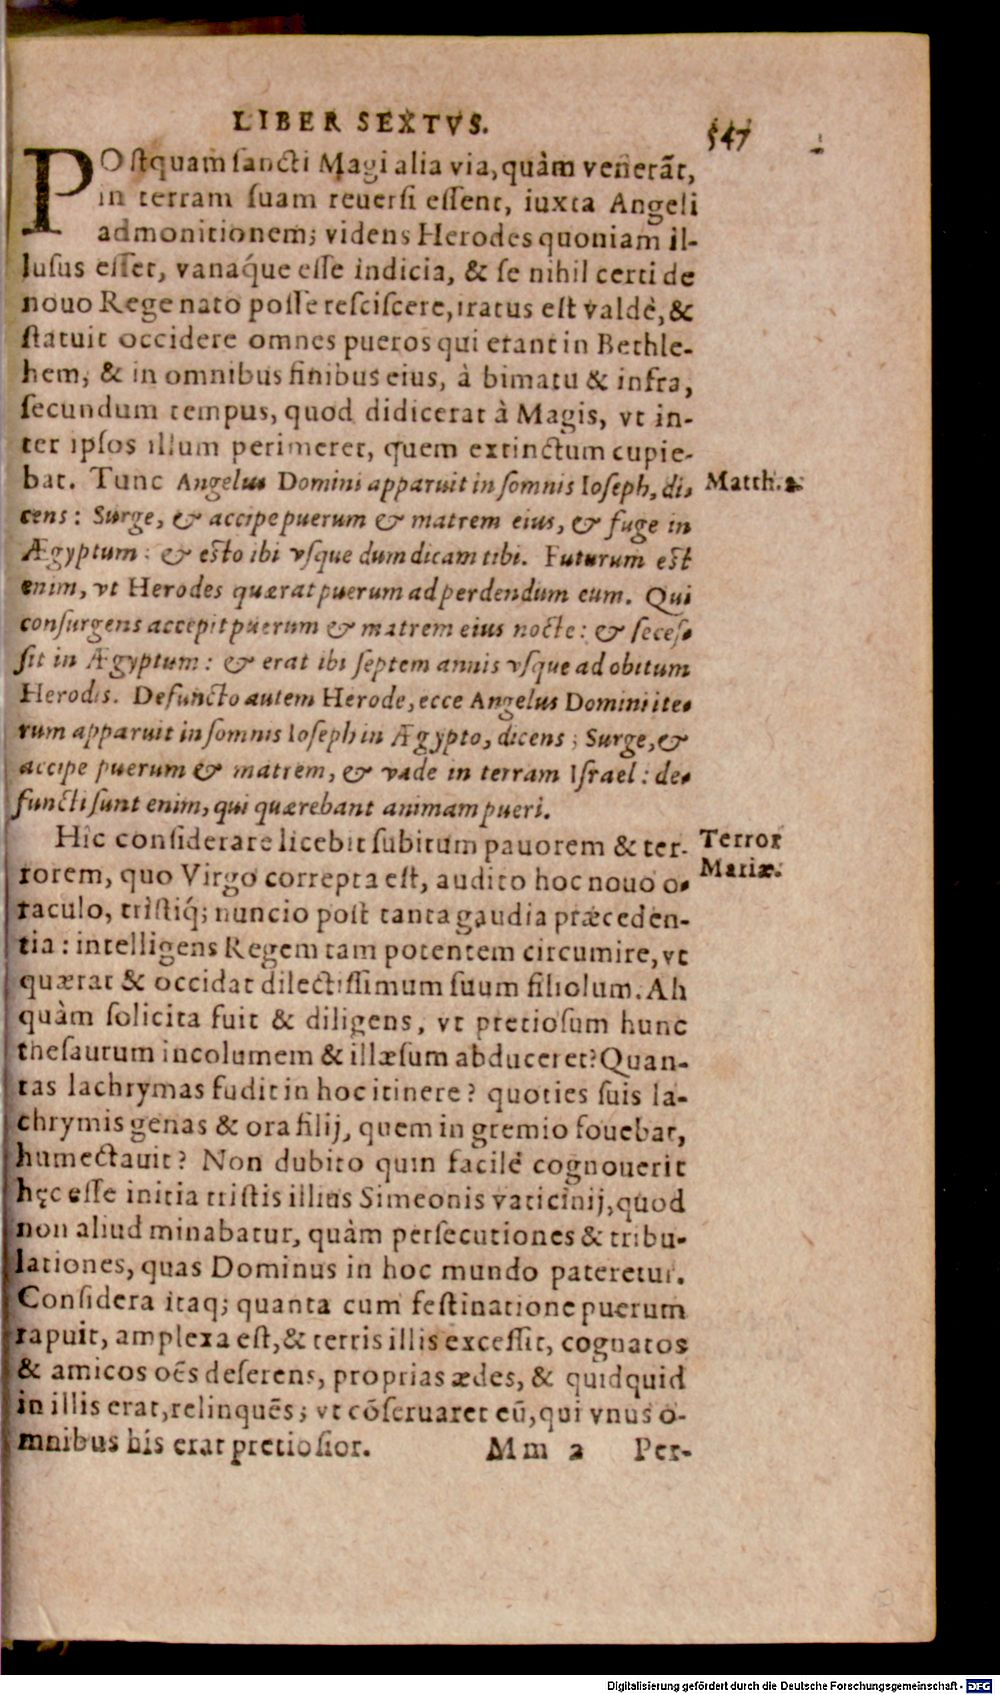 LIBER SEXTVS. 547
POstquam sancti Magi alia via, quàm venerãt,
in terram suam reuersi essent, iuxta Angeli
admonitionem; videns Herodes quoniam il-
lusus esset, vanaq́ue esse indicia, & se nihil certi de
nouo Rege nato posse resciscere, iratus est valdè, &
statuit occidere omnes pueros qui erant in Bethle-
hem, & in omnibus finibus eius, à bimatu & infra,
secundum tempus, quod didicerat à Magis, vt in-
ter ipsos illum perimeret, quem extinctum cupie-
bat. Tunc Angelus Domini apparuit in somnis Ioseph, di-
Matth. 2.
cens: Surge, & accipe puerum & matrem eius, & fuge in
Ægyptum: & esto ibi vsque dum dicam tibi. Futurum est
enim, vt Herodes quærat puerum ad perdendum eum. Qui
consurgens accepit puerum & matrem eius nocte: & seces-
sit in Ægyptum: & erat ibi septem annis vsque ad obitum
Herodis. Defuncto autem Herode, ecce Angelus Domini ite-
rum apparuit in somnis Ioseph in Ægypto, dicens; Surge, &
accipe puerum & matrem, & vade in terram Israel: de-
functi sunt enim, qui quærebant animam pueri.
Hîc considerare licebit subitum pauorem & ter-
Terror
rorem, quo Virgo correpta est, audito hoc nouo o-
Mariæ.
raculo, tristiq́; nuncio post tanta gaudia præceden-
tia: intelligens Regem tam potentem circumire, vt
quærat & occidat dilectissimum suum filiolum. Ah
quàm solicita fuit & diligens, vt pretiosum hunc
thesaurum incolumem & illæsum abduceret? Quan-
tas lachrymas fudit in hoc itinere? quoties suis la-
chrymis genas & ora filij, quem in gremio fouebat,
humectauit? Non dubito quin facilè cognouerit
hęc esse initia tristis illius Simeonis vaticinij, quod
non aliud minabatur, quàm persecutiones & tribu-
lationes, quas Dominus in hoc mundo pateretur.
Considera itaq; quanta cum festinatione puerum
rapuit, amplexa est, & terris illis excessit, cognatos
& amicos oẽs deserens, proprias ædes, & quidquid
in illis erat, relinquẽs; vt cõseruaret eũ, qui vnus o-
mnibus his erat pretiosior. Mm 2 Per-
Digitalisierung gefördert durch die Deutsche Forschungsgemeinschaft - DFG